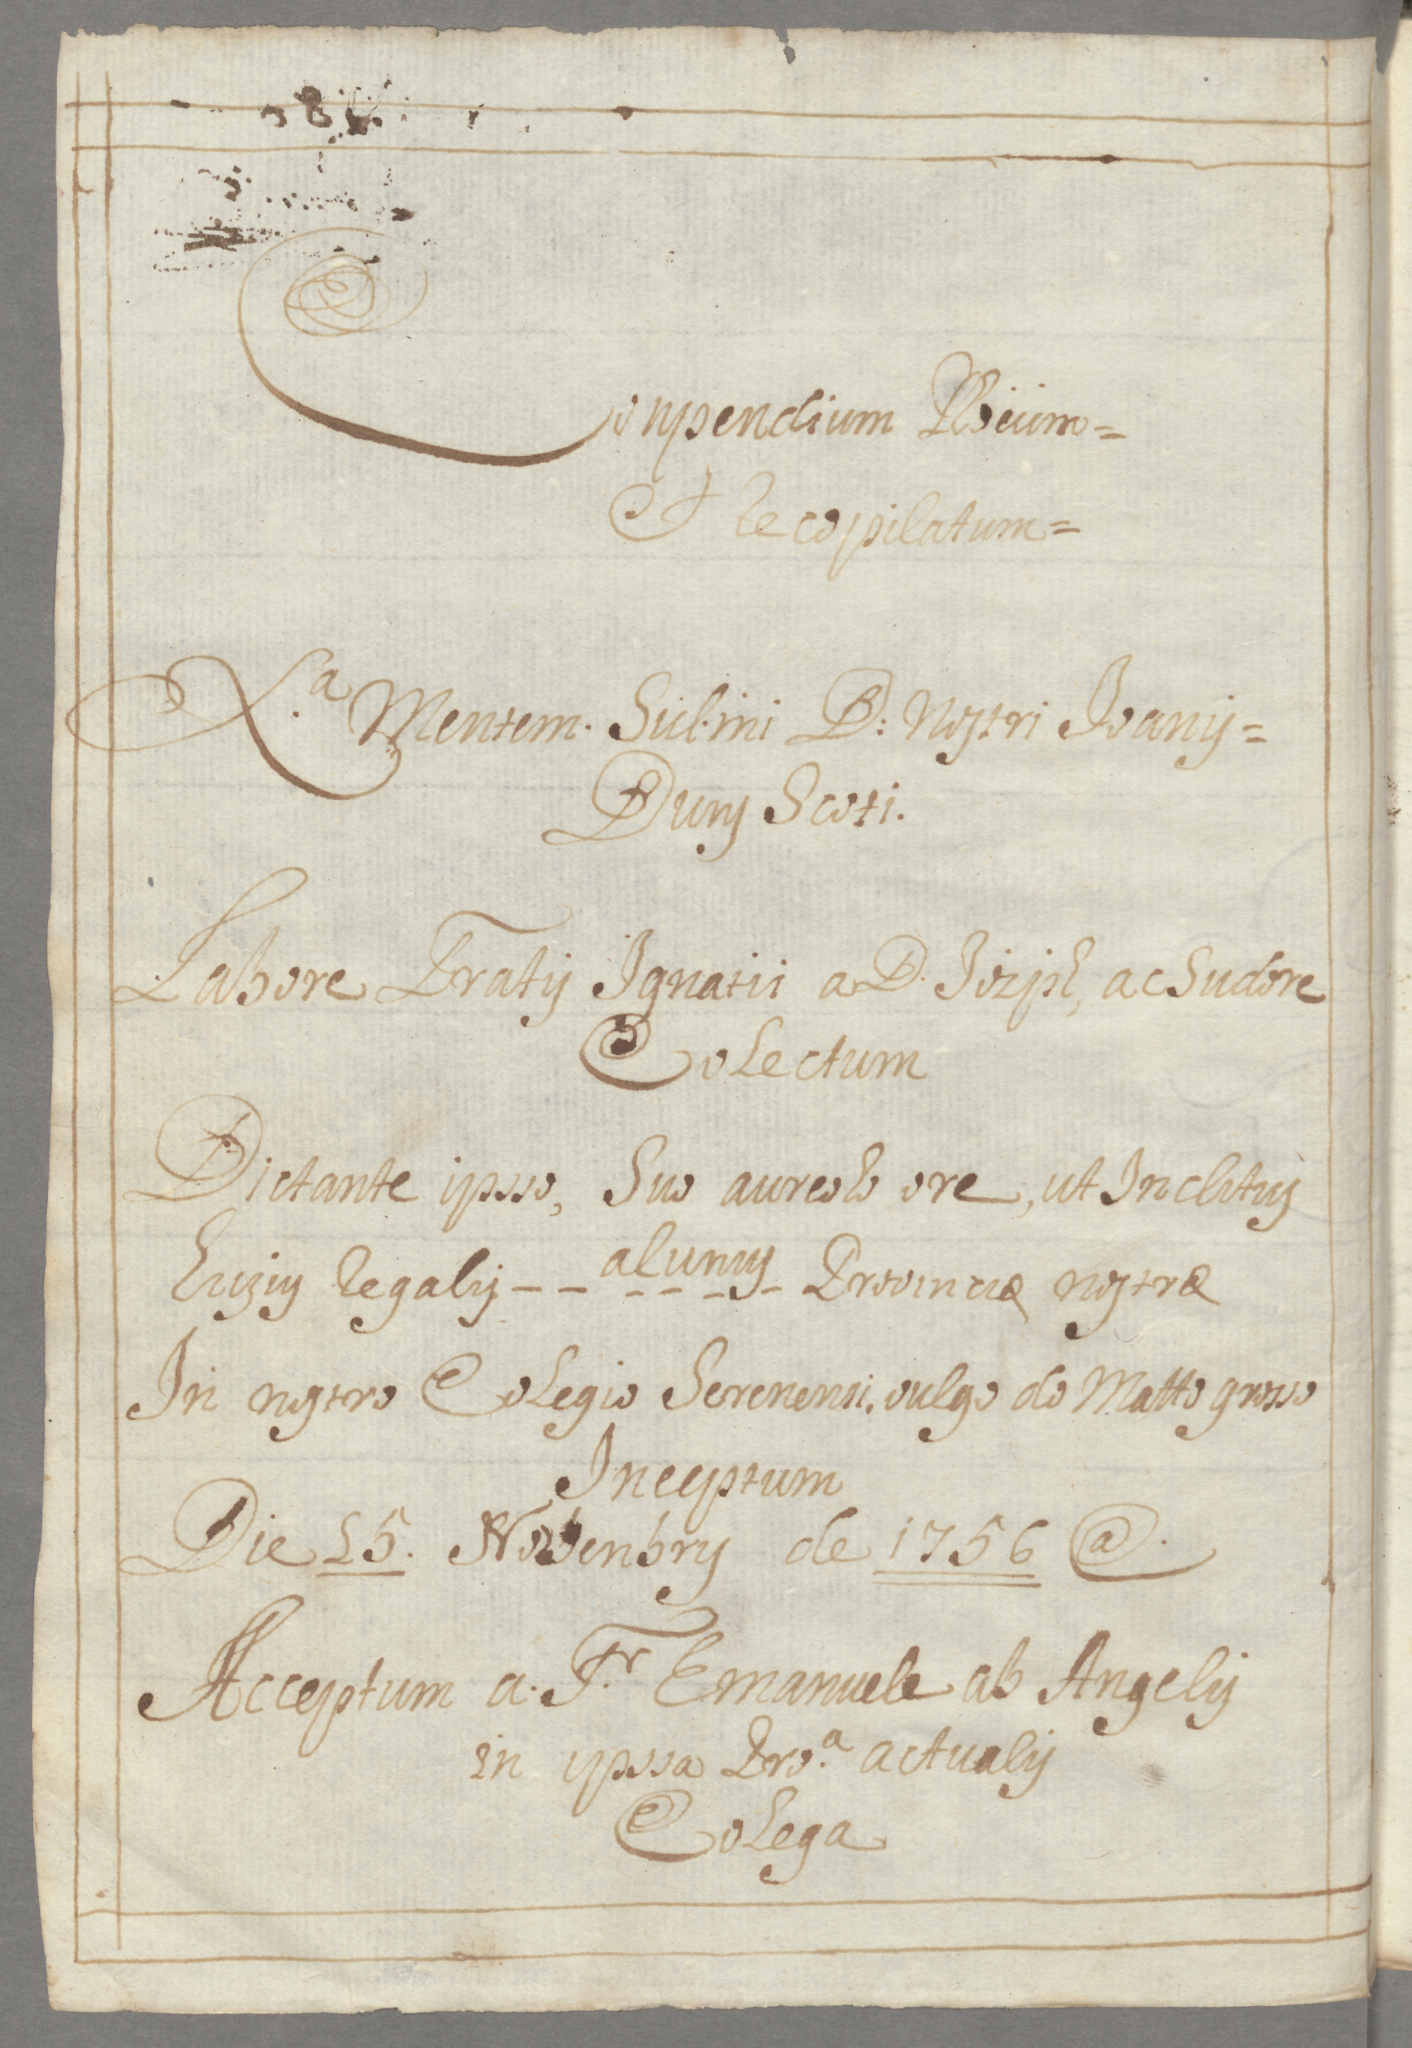 Conpendium Phicum=
Et recopilatum=
X.ª Mentem. Subtini D: nostri Joanis=
Duns Scoti.
Labore Fratis Ignatii a D. Jozph, ac Sudore
Colectum
Dictante ipsso, Suo aureolo ore, ut Inclitus
huzius legalis -- alunus - - - - Provinciæ nostræ
In nostro Colegio Serenensi, vulgo do Matto grosso
Inceptum
Die 25. Novenbris de 1756 @.
Acceptum a. Fr. Emanuele ab Angelis
in ipssa Pro.ª actualis
Colega